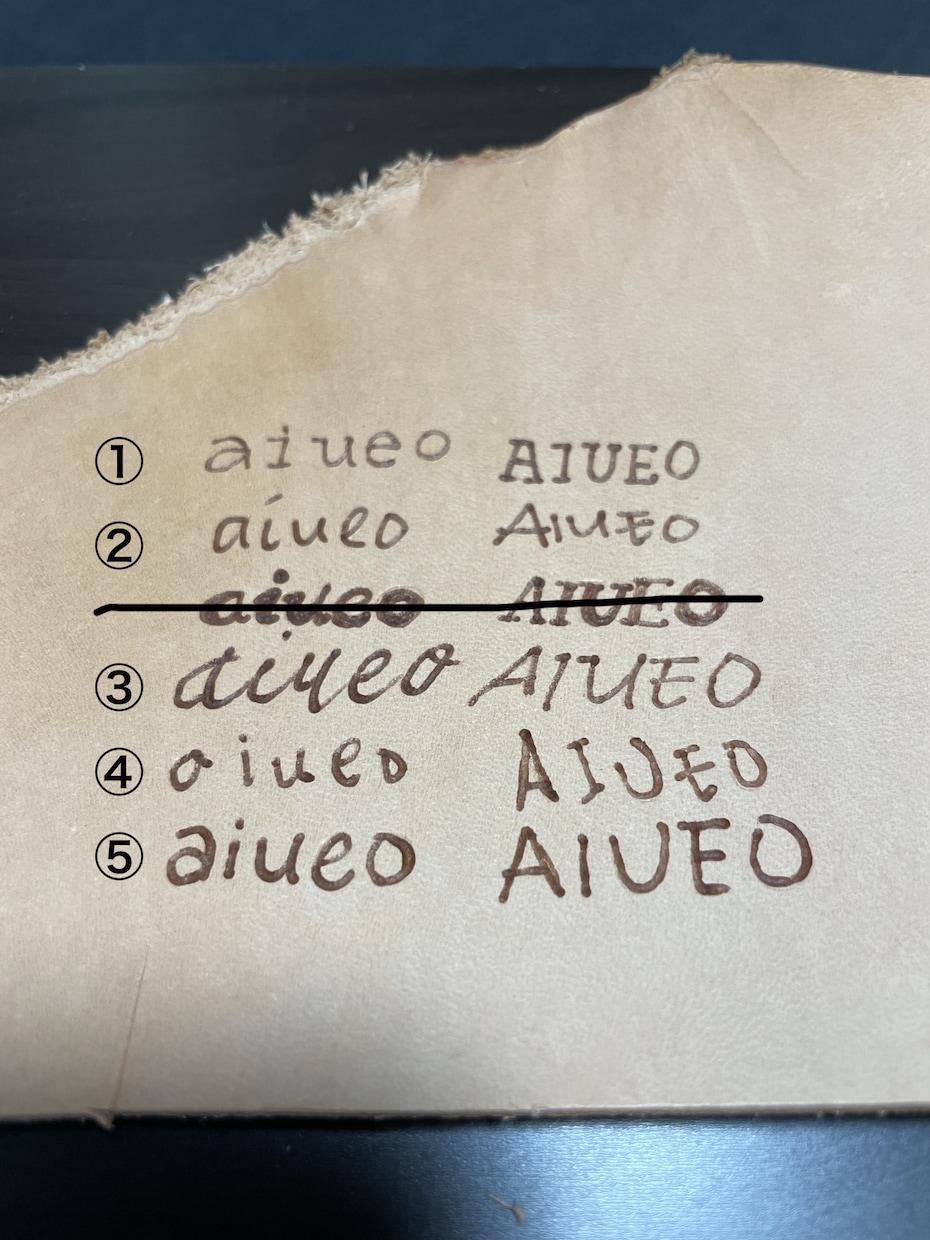 ① aiueo AIUEO
② aiueo AIUEO
aiueo AIUEO
③ aiueo AIUEO
④ aiueo AIUEO
⑤ aiueo AIUEO